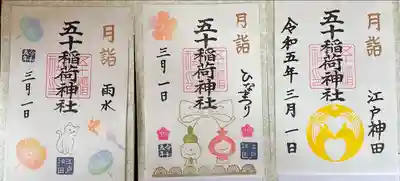 月詣
五十稲荷神社
雨水
三月一日
江戸神田
月詣
五十稲荷神社
ひなまつり
三月一日
江戸神田
月詣
五十稲荷神社
江戸神田
令和五年三月一日